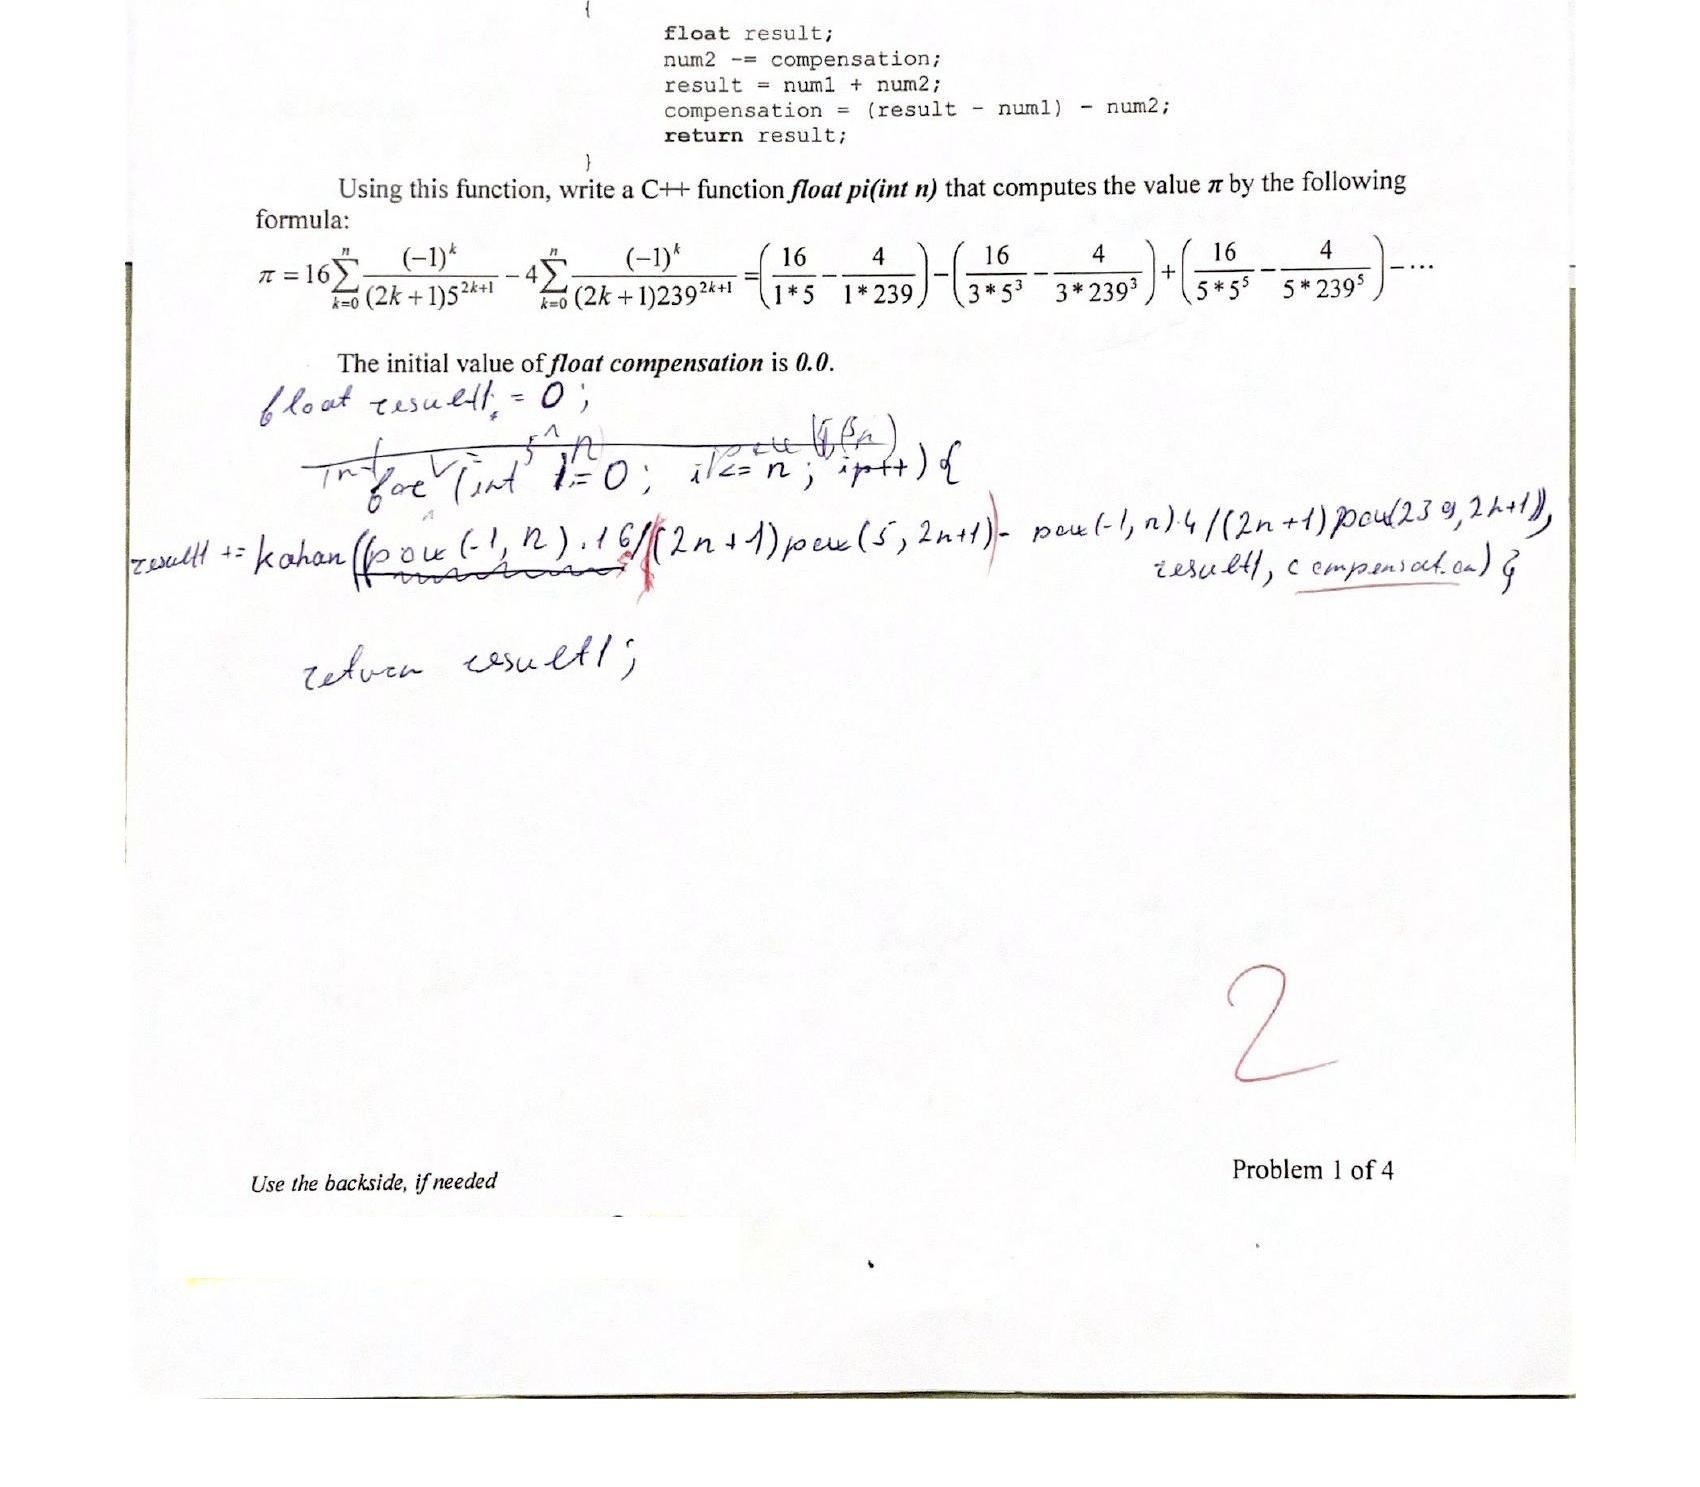 {
float result;
num2 -= compensation;
result = num1 + num2;
compensation = (result - num1) - num2;
return result;
}
Using this function, write a C++ function float pi(int n) that computes the value π by the following
formula:
π = 16 ∑_{k=0}^{n} (-1)^k / (2k+1)5^{2k+1} - 4 ∑_{k=0}^{n} (-1)^k / (2k+1)239^{2k+1} = (16 / 1*5 - 4 / 1*239) - (16 / 3*5^3 - 4 / 3*239^3) + (16 / 5*5^5 - 4 / 5*239^5) - ...
The initial value of float compensation is 0.0.
float result1 = 0;
for (int = 0; <= n; ++) {
result1 += kahan((pow (-1, n) . 16/((2n+1)pow(5, 2n+1)) - pow(-1, n).4/((2n+1)pow(239, 2n+1)),
result1, compensation) }
return result1;
2
Use the backside, if needed
Problem 1 of 4